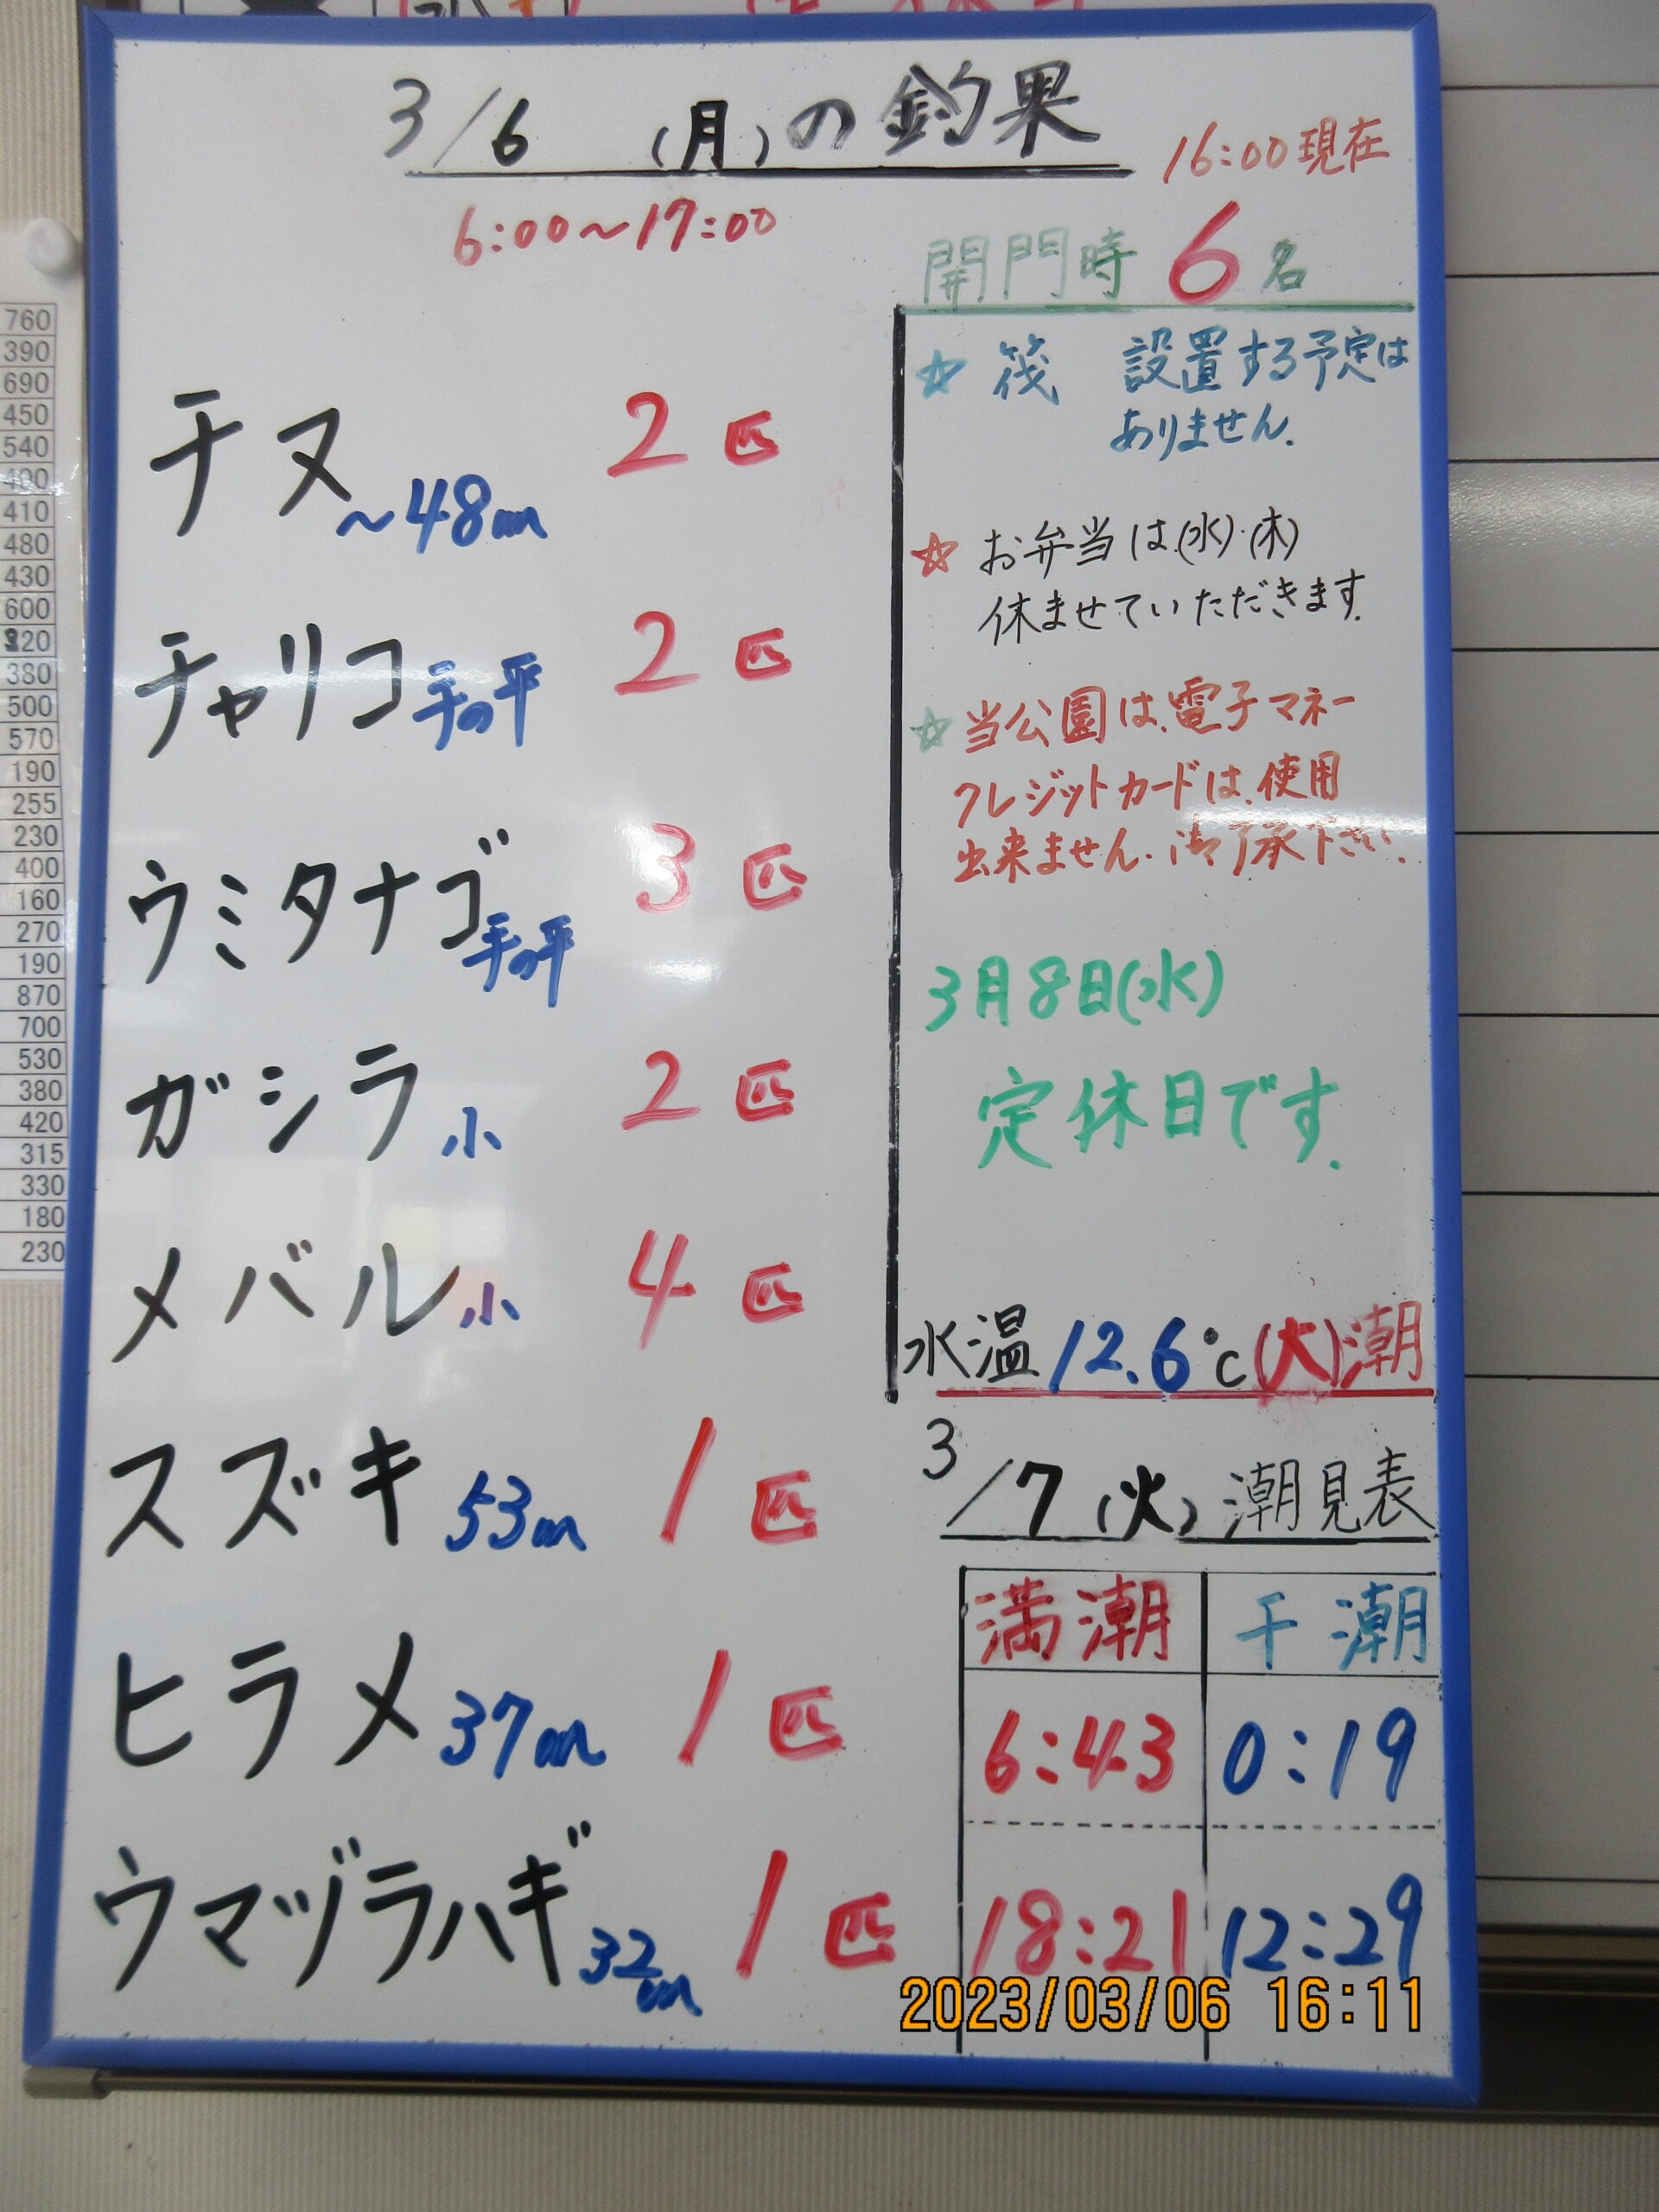 3/6 (月)の釣果
16:00現在
6:00～17:00
開門時 6名
チヌ ～48cm 2匹
チャリコ 手の平 2匹
ウミタナゴ 手の平 3匹
ガシラ 小 2匹
メバル 小 4匹
スズキ 53cm 1匹
ヒラメ 37cm 1匹
ウマヅラハギ 32cm 1匹
☆ 筏 設置する予定は
ありません.
☆ お弁当は(水)・(木)
休ませていただきます.
☆ 当公園は、電子マネー
クレジットカードは、使用
出来ません. 御了承下さい.
3月8日(水)
定休日です.
水温 12.6℃ (大)潮
3/7 (火) 潮見表
満潮 干潮
6:43 0:19
18:21 12:29
2023/03/06 16:11
760
390
690
450
540
400
410
480
430
600
320
380
500
570
190
255
230
400
160
270
190
870
700
530
380
420
315
330
180
230